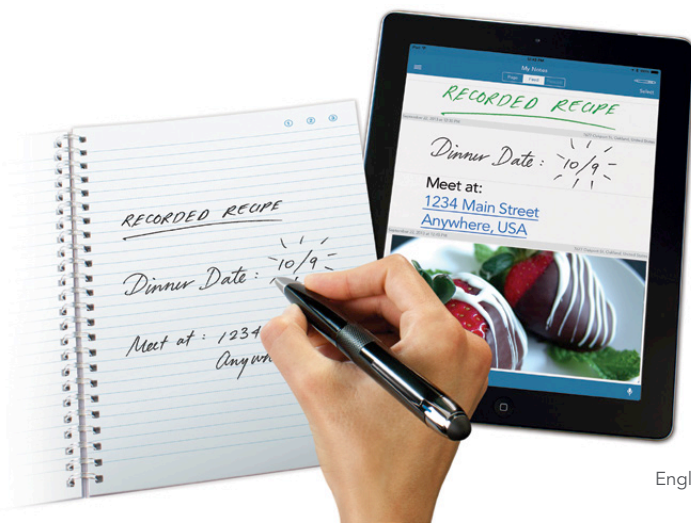 ① ② ③
RECORDED RECIPE
Dinner Date : 10/9
Meet at : 1234
My Notes
Page Feed
Select
RECORDED RECIPE
Dinner Date : 10/9
Meet at:
1234 Main Street
Anywhere, USA
Engl